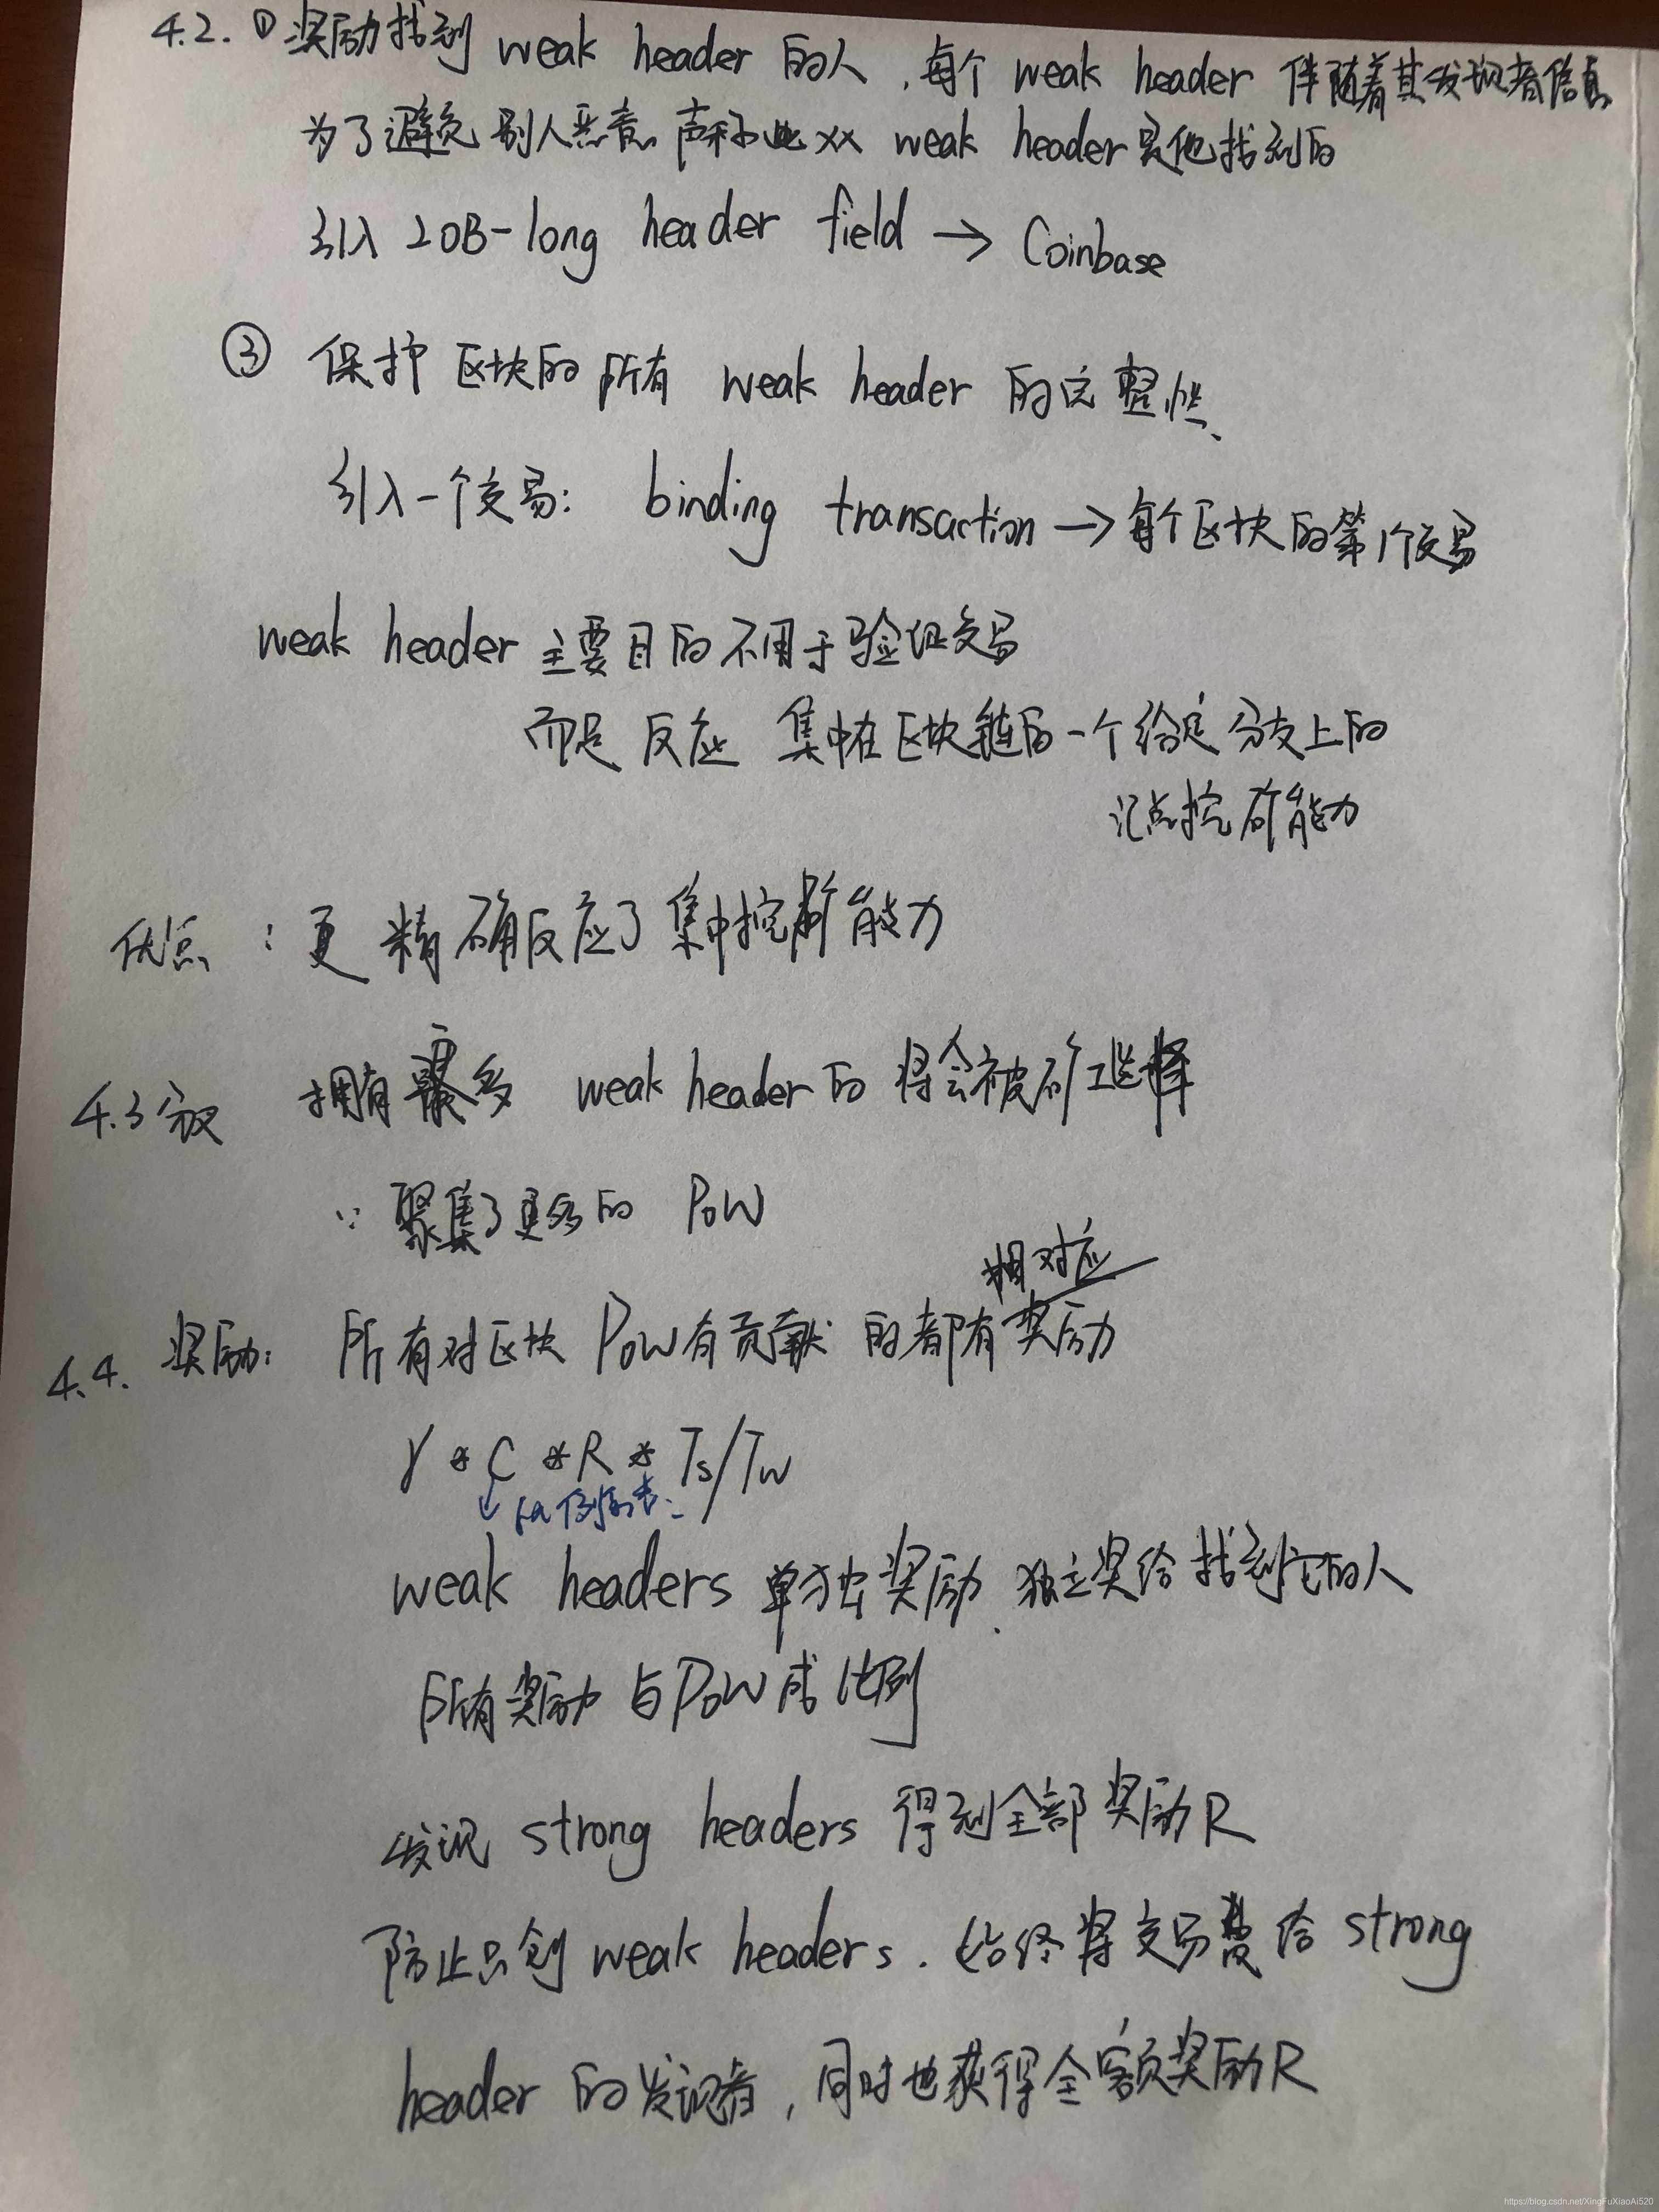 4.2. ① 奖励找到 weak header 的人，每个 weak header 伴随着其发现者信息
为了避免别人恶意声称此xx weak header是他找到的
引入 20B-long header field → Coinbase
③ 保护区块的所有 weak header 的完整性、
引入一个交易: binding transaction → 每个区块的第1个交易
weak header 主要目的不用于验证交易
而是反应 集中在区块链的一个给定分支上的
汇点挖矿能力
优点 : 更精确反应了集中挖矿能力
4.3 分叉 拥有最多 weak header的 将会被矿工选择
∵ 聚集了更多的 PoW
相对应
4.4. 奖励: 所有对区块 PoW有贡献的都有奖励
γ * C * R * Ts/Tw
↓ 比例因子.
weak headers 单独奖励. 独立奖给找到它的人
所有奖励与PoW成比例
发现 strong headers 得到全部奖励R
防止只创 weak headers. 始终将交易费给 strong
header 的发现者, 同时也获得全额奖励R
https://blog.csdn.net/XingFuXiaoAi520